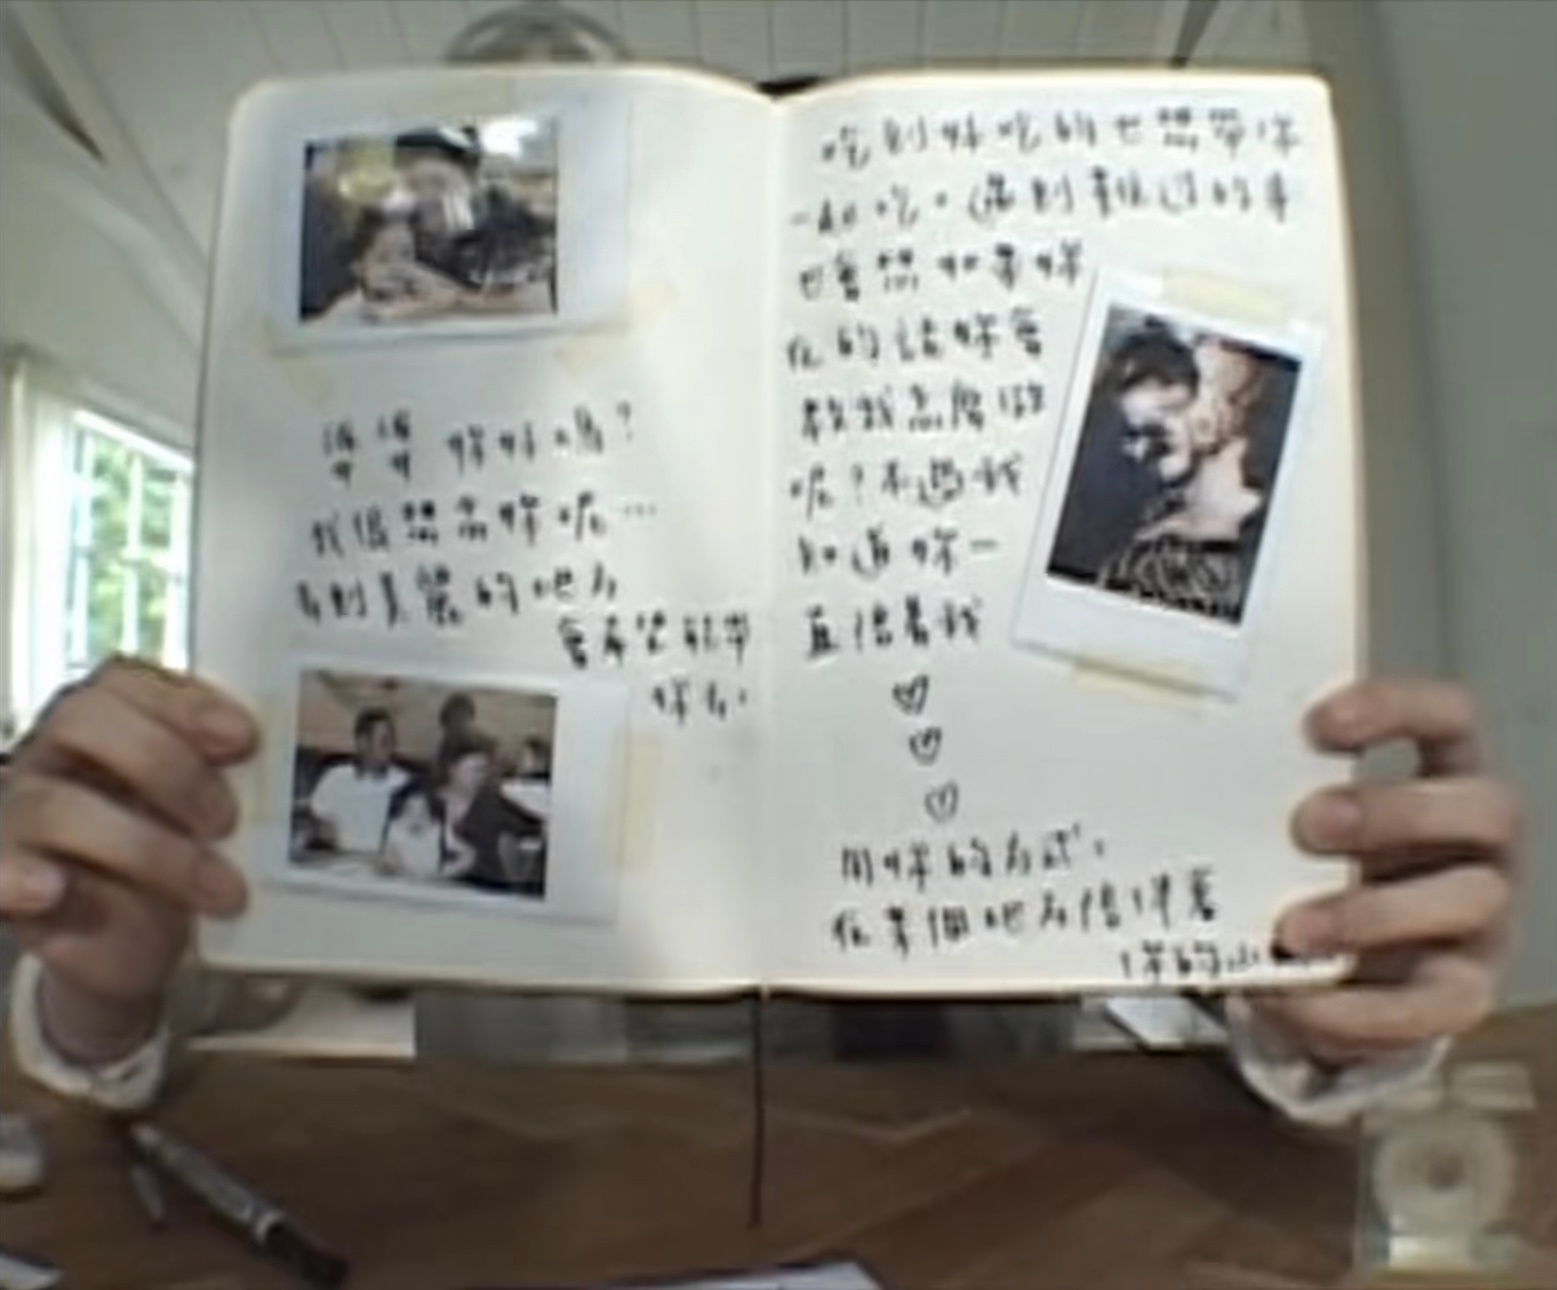 妳好嗎?
我很想念妳呢…
看到美麗的地方
會希望能帶
妳去.
吃到好吃的也想帶妳
一起吃。遇到難過的事
也會想如果妳
在的話妳會
教我怎麼做
呢?不過我
知道妳一
直陪著我
用妳的方式.
在某個地方陪伴著
妳的小